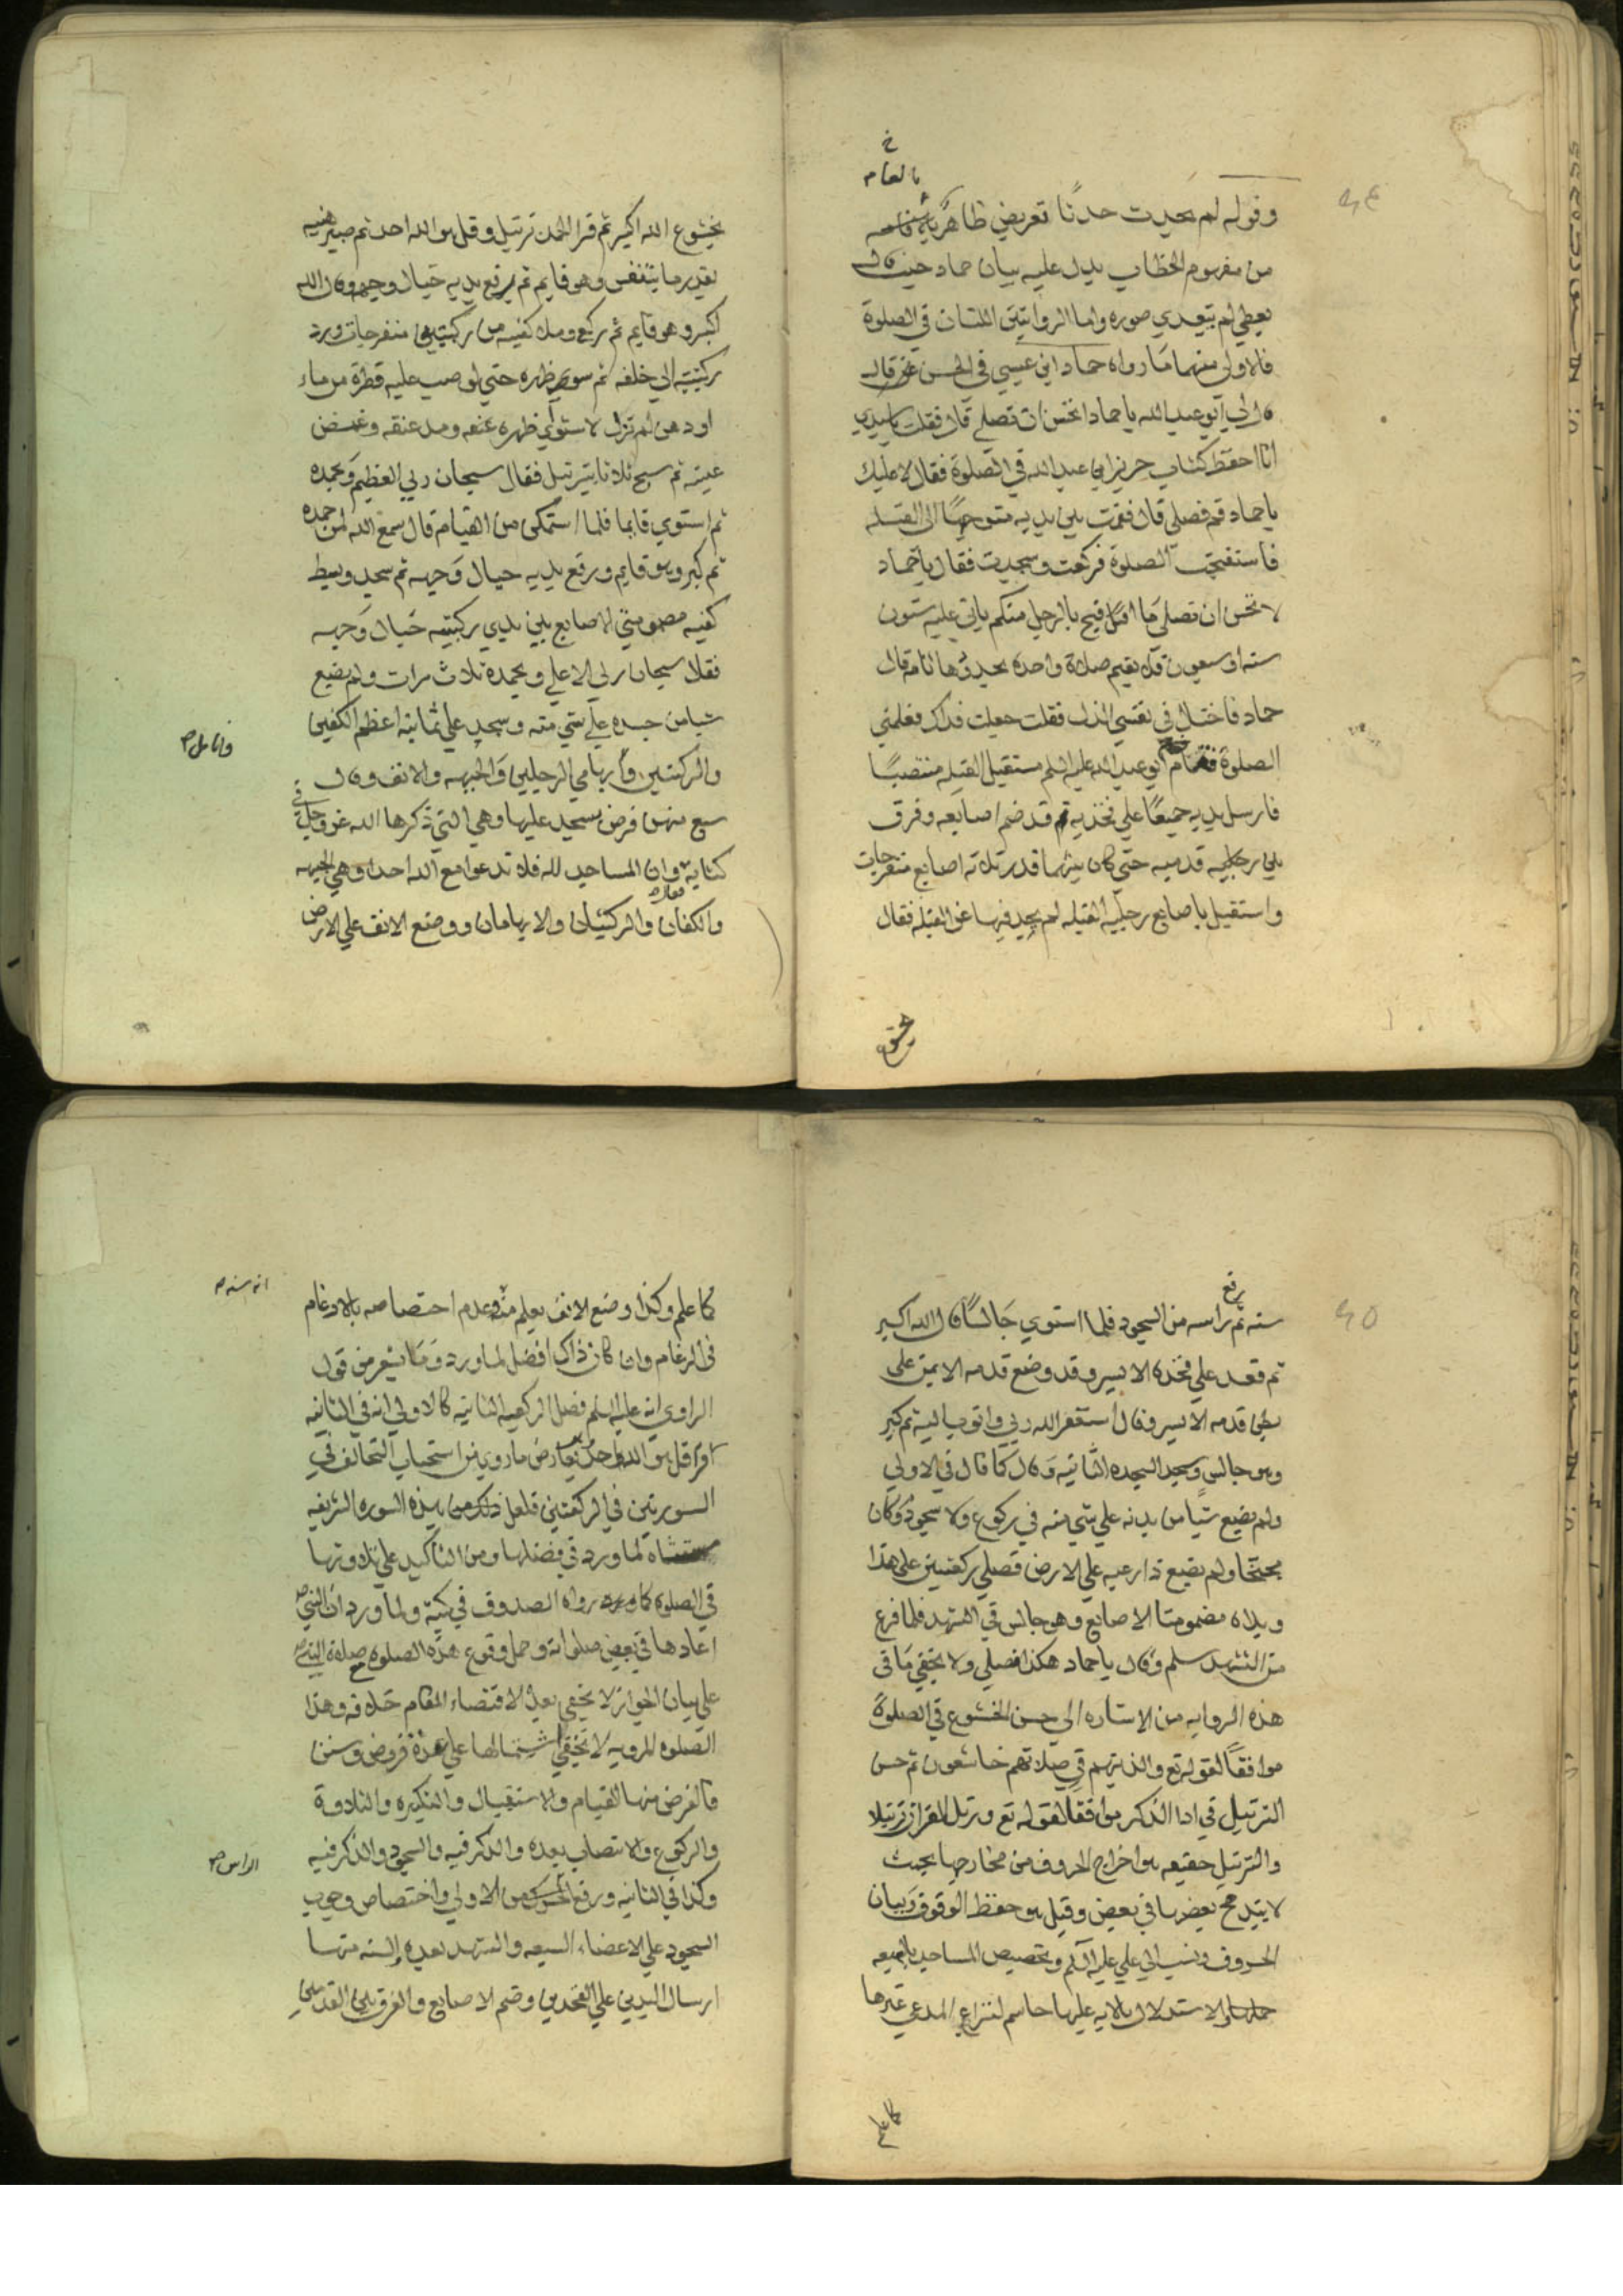 خ
بالعام
وقوله لم يحدث حدثا تعريض ظاهر
من مفهوم الخطاب يدل عليه بيان حماد حيث قال
يعطي لم يتعدي صوره واما الروايتين اللتان في الصلوة
فالاولى منهما ما رواه حماد ابن عيسي في الحسن قال
قال لي ابو عبد الله يا حماد اتحسن ان تصلي قال فقلت يا سيدي
انا احفظ كتاب حريز ابي عبد الله في الصلوة فقال لا عليك
يا حماد قم فصلي قال فقمت بين يديه متوجها الى القبله
فاستفتحت الصلوة فركعت وسجدت فقال يا حماد
لا تحسن ان تصلي ما اقبح بالرجل منكم ياتي عليه ستون
سنه او سبعون فلا يقيم صلاة واحدة بحدودها تامة قال
حماد فاصابني في نفسي الذل فقلت جعلت فداك فعلمني
الصلوة فقام ابو عبد الله عليه السلم مستقبل القبله منتصبا
فارسل يديه جميعا علي فخذيه قد ضم اصابعه وفرق
بين قدميه حتي كان بينهما قدر ثلاثه اصابع منفرجات
واستقبل باصابع رجليه القبله لم يحد فيها عن القبله فقال
بخشوع
بخشوع الله اكبر ثم قرا الحمد بترتيل وقل هو الله احد ثم صبر هنيه
بقدر ما يتنفس وهو قايم ثم يرفع يديه حيال وجهه وقال الله
اكبر وهو قايم ثم ركع وملا كفيه من ركبتيه منفرجات ورد
ركبتيه الي خلفه ثم سوي ظهره حتي لو صب عليه قطرة من ماء
او دهن لم تزل لاستواي ظهره ومد عنقه وغمض
عينيه ثم سبح ثلاثا بترتيل فقال سبحان ربي العظيم وبحمده
ثم استوي قايما فلما استمكن من القيام قال سمع الله لمن حمده
ثم كبر وهو قايم ورفع يديه حيال وجهه ثم سجد وبسط
كفيه مضمومتي الاصابع بين يدي ركبتيه حيال وجهه
فقال سبحان ربي الاعلي وبحمده ثلاث مرات ولم يضع
شيا من جسده علي شي منه وسجد علي ثمانية اعظم الكفين
والركبتين وابهامي الرجلين والجبهه والانف وقال
سبع منهن فرض يسجد عليها وهي التي ذكرها الله عز وجل في
كتابه وان المساجد لله فلا تدعوا مع الله احدا وهي الجبهه
والكفان والركبتان والابهامان ووضع الانف علي الارض
وانامل ص
رفع
سنه ثم راسه من السجود فلما استوي جالسا قال الله اكبر
ثم قعد علي فخذه الايسر وقد وضع قدمه الايمن على
بطن قدمه الايسر وقال استغفر الله ربي واتوب اليه ثم كبر
وهو جالس وسجد السجده الثانيه وقال كما قال في الاولي
ولم يضع شيا من بدنه علي شي منه في ركوع ولا سجود وكان
مجنحا ولم يضع ذراعيه علي الارض فصلي ركعتين على هذا
ويداه مضمومتا الاصابع وهو جالس في التشهد فلما فرغ
من التشهد سلم وقال يا حماد هكذا فصلي ولا يخفي ما في
هذه الروايه من الاشاره الي حسن الخشوع في الصلوة
موافقا لقوله تع والذينهم في صلاتهم خاشعون ثم حسن
الترتيل في ادا الذكر موافقا لقوله تع ورتل القران ترتيلا
والترتيل حقيقه هو اخراج الحروف من مخارجها بحيث
لا يندمج بعضها في بعض وقيل هو حفظ الوقوف وبيان
الحروف ونسب الي علي عليه السلم وتخصيص المساجد بالسبعه
والاستدلال بالايه عليها حاسم لنزاع المدعي غيرها
كما علم
كما علم وكذا وضع الانف يعلم منه عدم اختصاصه بالارغام
في الرغام وان كان ذاك افضل لما ورد وما يشعر من قول
الراوي انه عليه السلم فصل الركعه الثانيه كالاولي انه في الثانيه
اقرا قل هو الله احد يعارض ما روي من استحباب التخالف في
السورتين في الركعتين فلعل ذلك من هذه السوره الشريفه
مستثناه لما ورد في فضلها ومن التاكيد علي تلاوتها
في الصلوة كما رواه الصدوق في كتبه ولما ورد ان النبي ص
اعادها في بعض صلواته وحمل وقوع هذه الصلوة
علي بيان الجواز لا يخفي بعده لاقتضاء المقام خلافه وهذا
الصلوه المرويه لا يخفي اشتمالها علي عدة فروض وسنن
فالفرض منها القيام والاستقبال والتكبيره والتلاوة
والركوع والانتصاب بعده والذكر فيه والسجود والذكر فيه
وكذا في الثانيه ورفع من الاولي واختصاص وجوب
السجود علي الاعضاء السبعه والتشهد بعده والسنه منها
ارسال اليدين علي الفخذين وضم الاصابع والفرق بين القدمين
الراس ص